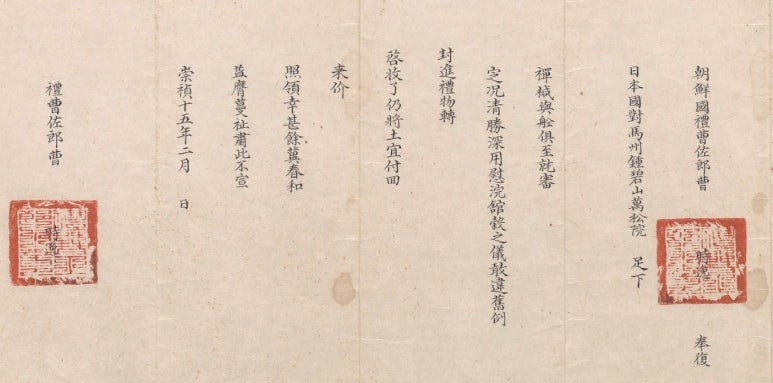 朝鮮國禮曹佐郎曹 時逸 奉復
日本國對馬州鍾碧山萬松院 足下
禪椷與舩俱至就審
定况清勝深用慰浣舘穀之儀敢違舊例
封進禮物轉
啓收了仍將土宜付回
来价
照領幸甚餘冀春和
益膺蔓祉肅此不宣
崇禎十五年二月 日
禮曹佐郎曹 時逸